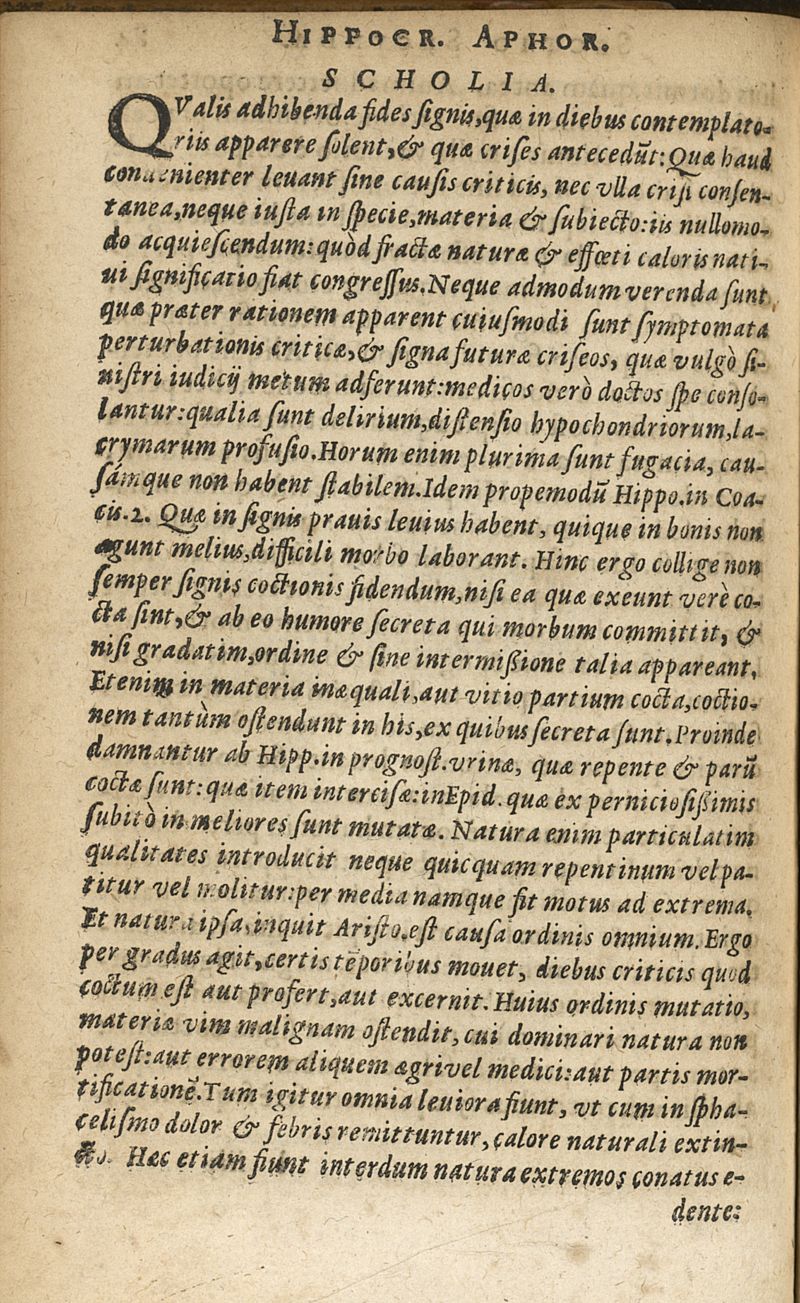 HIPPOCR. APHOR.
SCHOLIA.
QValis adhibenda fides signis,quæ in diebus contemplato-
riis apparere solent,& quæ crises antecedūt:Quæ haud
conuenienter leuant sine causis criticis, nec vlla crisi consen-
tanea,neque iusta in specie,materia & subiecto:iis nullomo-
do acquiescendum:quòd fractæ naturæ & effœti caloris nati-
ui significatio fiat congressus.Neque admodum verenda sunt
quæ præter rationem apparent cuiusmodi sunt symptomata
perturbationis criticæ,& signa futuræ criseos, quæ vulgò si-
nistri iudicij metum adferunt:medicos verò doctos spe conso-
lantur:qualia sunt delirium,distensio hypochondriorum,la-
crymarum profusio.Horum enim plurima sunt fugacia, cau-
sámque non habent stabilem.Idem propemodū Hippo.in Coa-
cis.2. Quæ in signis prauis leuius habent, quique in bonis non
agunt melius,difficili morbo laborant. Hinc ergo collige non
semper signis coctionis fidendum,nisi ea quæ exeunt verè co-
cta sint,& ab eo humore secreta qui morbum committit, &
nisi gradatim,ordine & sine intermißione talia appareant.
Etenim in materia inæquali,aut vitio partium cocta,coctio-
nem tantùm ostendunt in his,ex quibus secreta sunt.Proinde
damnantur ab Hipp.in prognost.vrinæ, quæ repente & parū
coctæ sunt:quæ item intercisæ:inEpid.quæ ex perniciosißimis
subitò in meliores sunt mutatæ. Natura enim particulatim
qualitates introducit neque quicquam repentinum vel pa-
titur vel molitur:per media namque fit motus ad extrema.
Et natura ipsa,inquit Aristo.est causa ordinis omnium.Ergo
per gradus agit,certis tēporibus mouet, diebus criticis quod
coctum est aut profert,aut excernit.Huius ordinis mutatio,
materiæ vim malignam ostendit,cui dominari natura non
potest:aut errorem aliquem ægri vel medici:aut partis mor-
tificationē.Tum igitur omnia leuiora fiunt, vt cum in spha-
celismo dolor & febris remittuntur,calore naturali extin-
Hæc etiam fiunt interdum natura extremos conatus e-
dente: